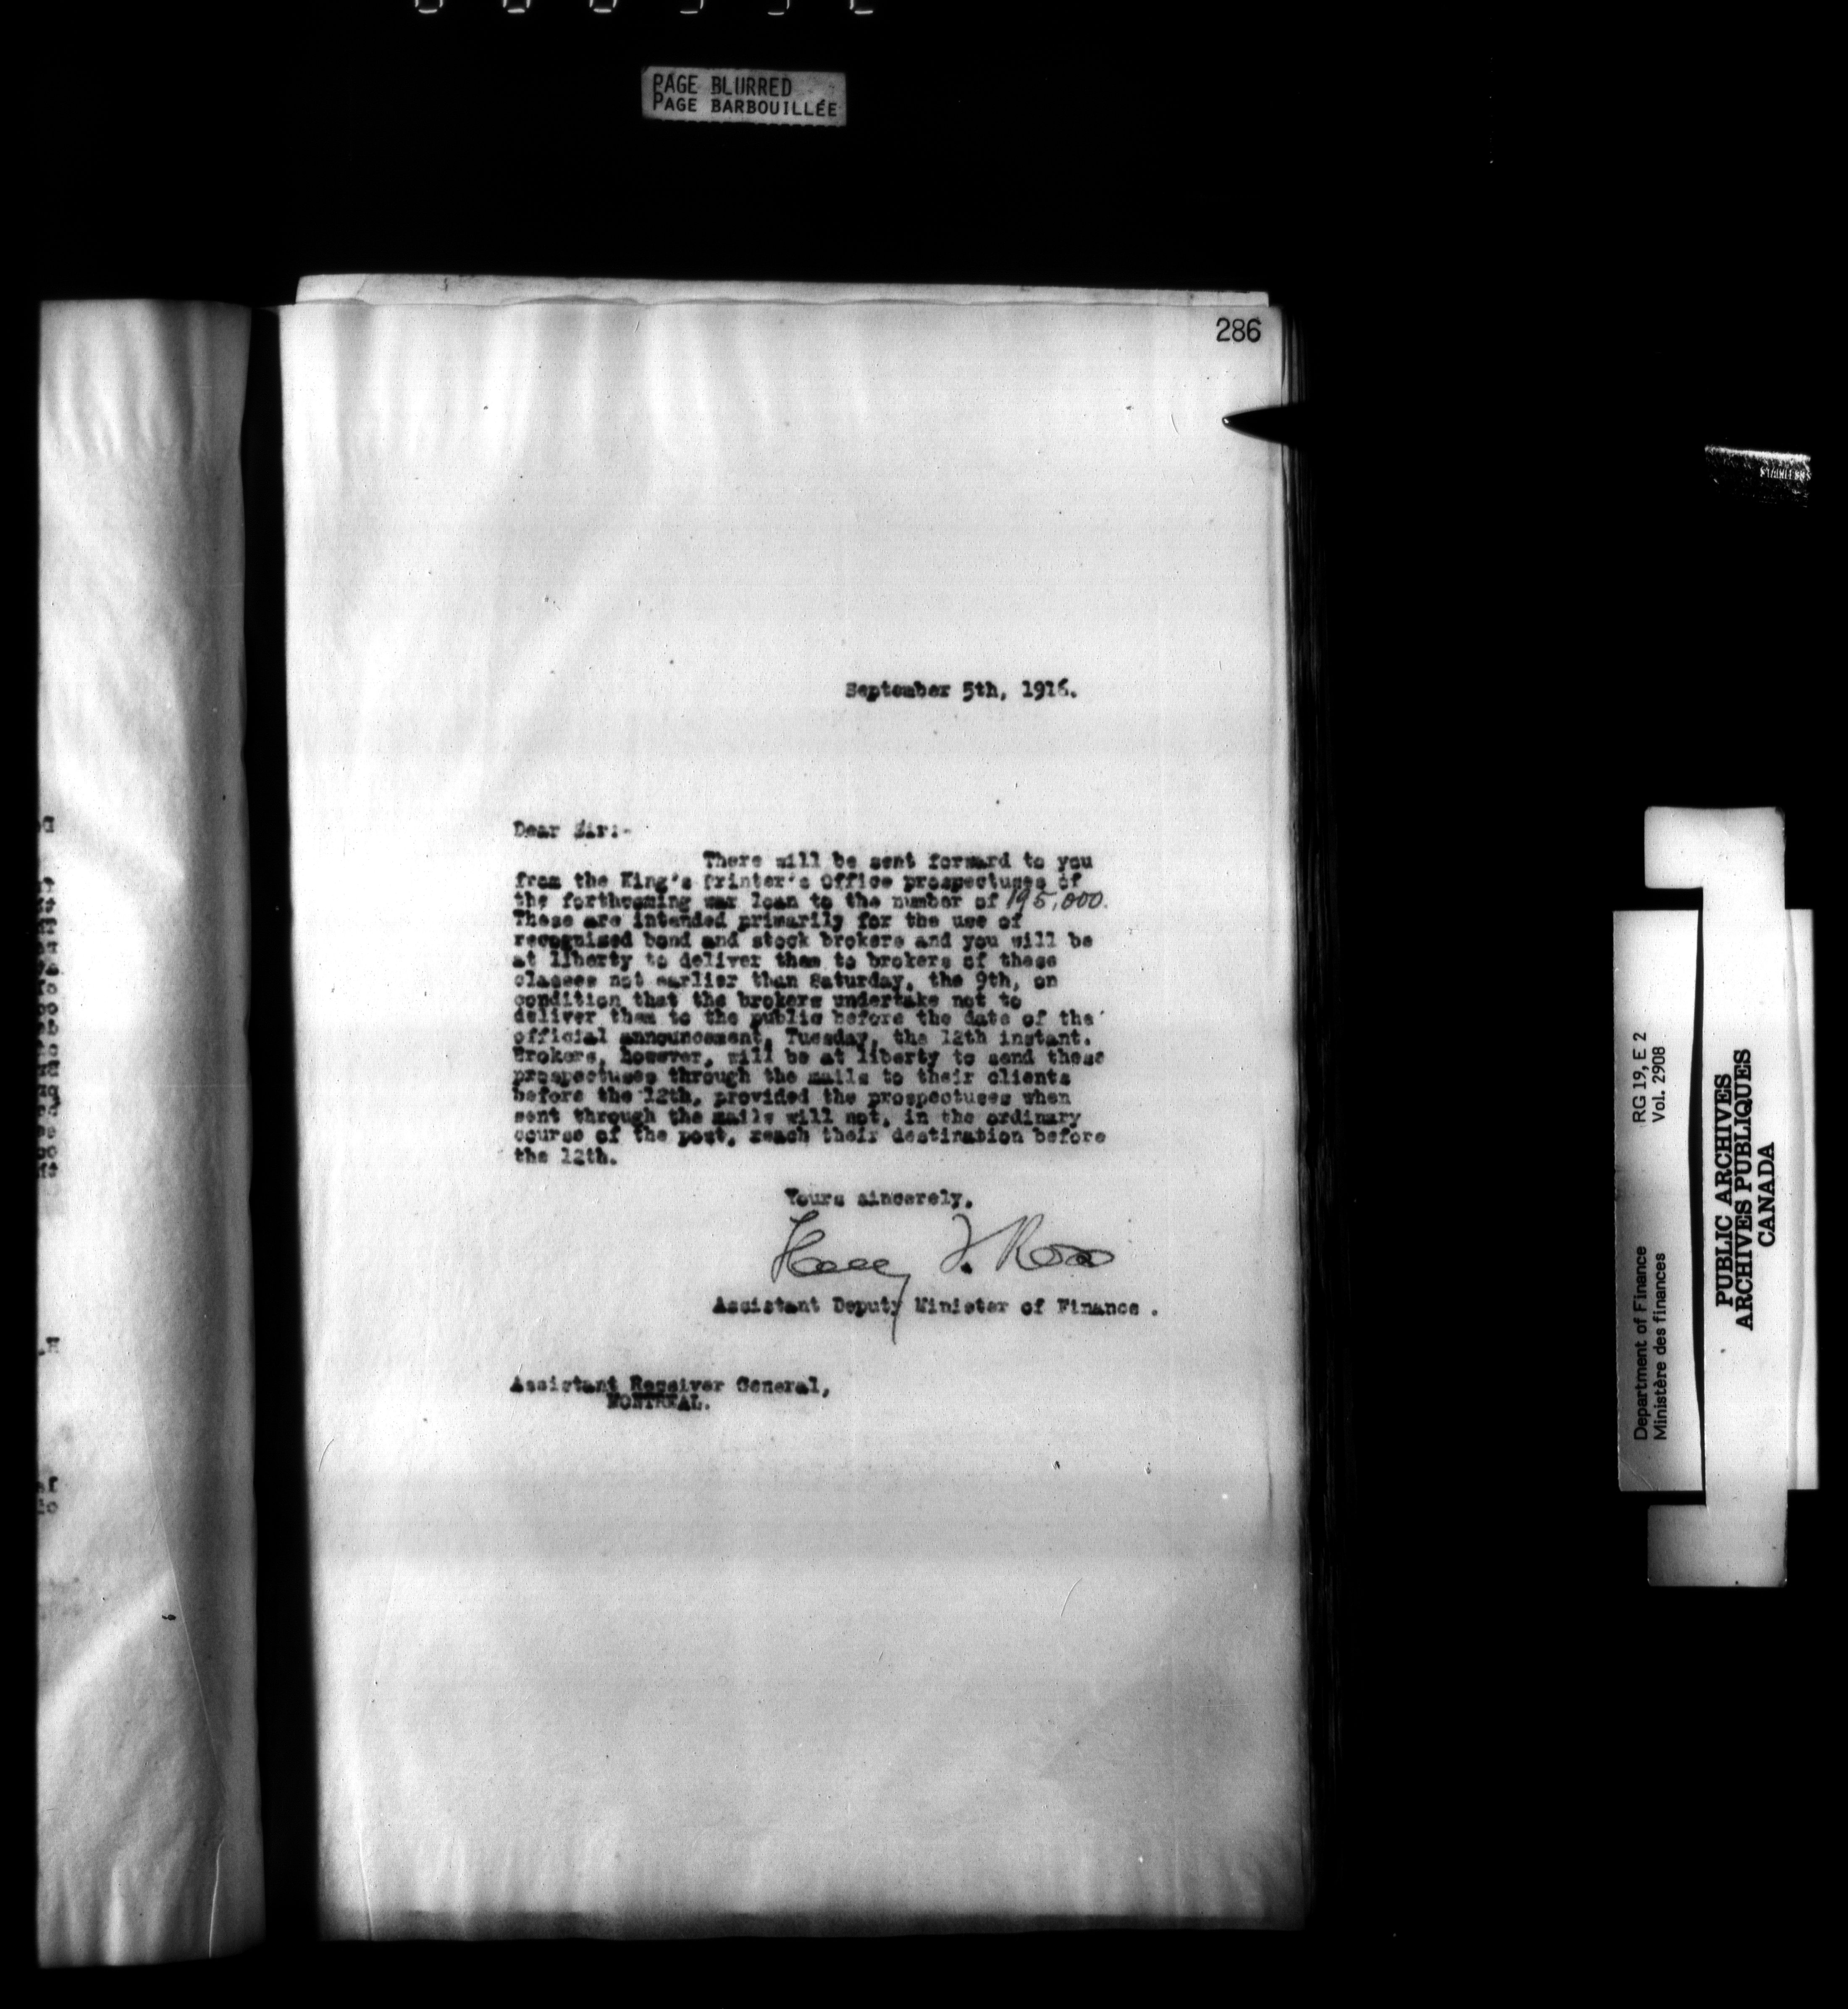 PAGE BLURRED
PAGE BARBOUILLÉE
286
September 5th, 1916.
Dear Sir:-
There will be sent forward to you
from the King's Printer's Office prospectuses of
the forthcoming war loan to the number of 195,000.
These are intended primarily for the use of
recognised bond and stock brokers and you will be
at liberty to deliver them to brokers of these
classes not earlier than Saturday, the 9th, on
condition that the brokers undertake not to
deliver them to the public before the date of the
official announcement, Tuesday, the 12th instant.
Brokers, however, will be at liberty to send these
prospectuses through the mails to their clients
before the 12th, provided the prospectuses when
sent through the mails will not, in the ordinary
course of the post, reach their destination before
the 12th.
Yours sincerely,
Henry T. Ross
Assistant Deputy Minister of Finance.
Assistant Receiver General,
MONTREAL.
Department of Finance RG 19, E 2
Ministère des finances Vol. 2908
PUBLIC ARCHIVES
ARCHIVES PUBLIQUES
CANADA